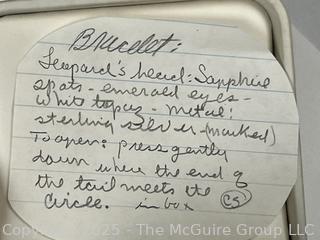 Bracelet:
Leopard's head: Sapphire
spots - emerald eyes -
white topaz - metal:
sterling silver (marked)
To open: press gently
down where the end of
the tail meets the
Circle. in box CS
Copyright 2025 - The McGuire Group LLC